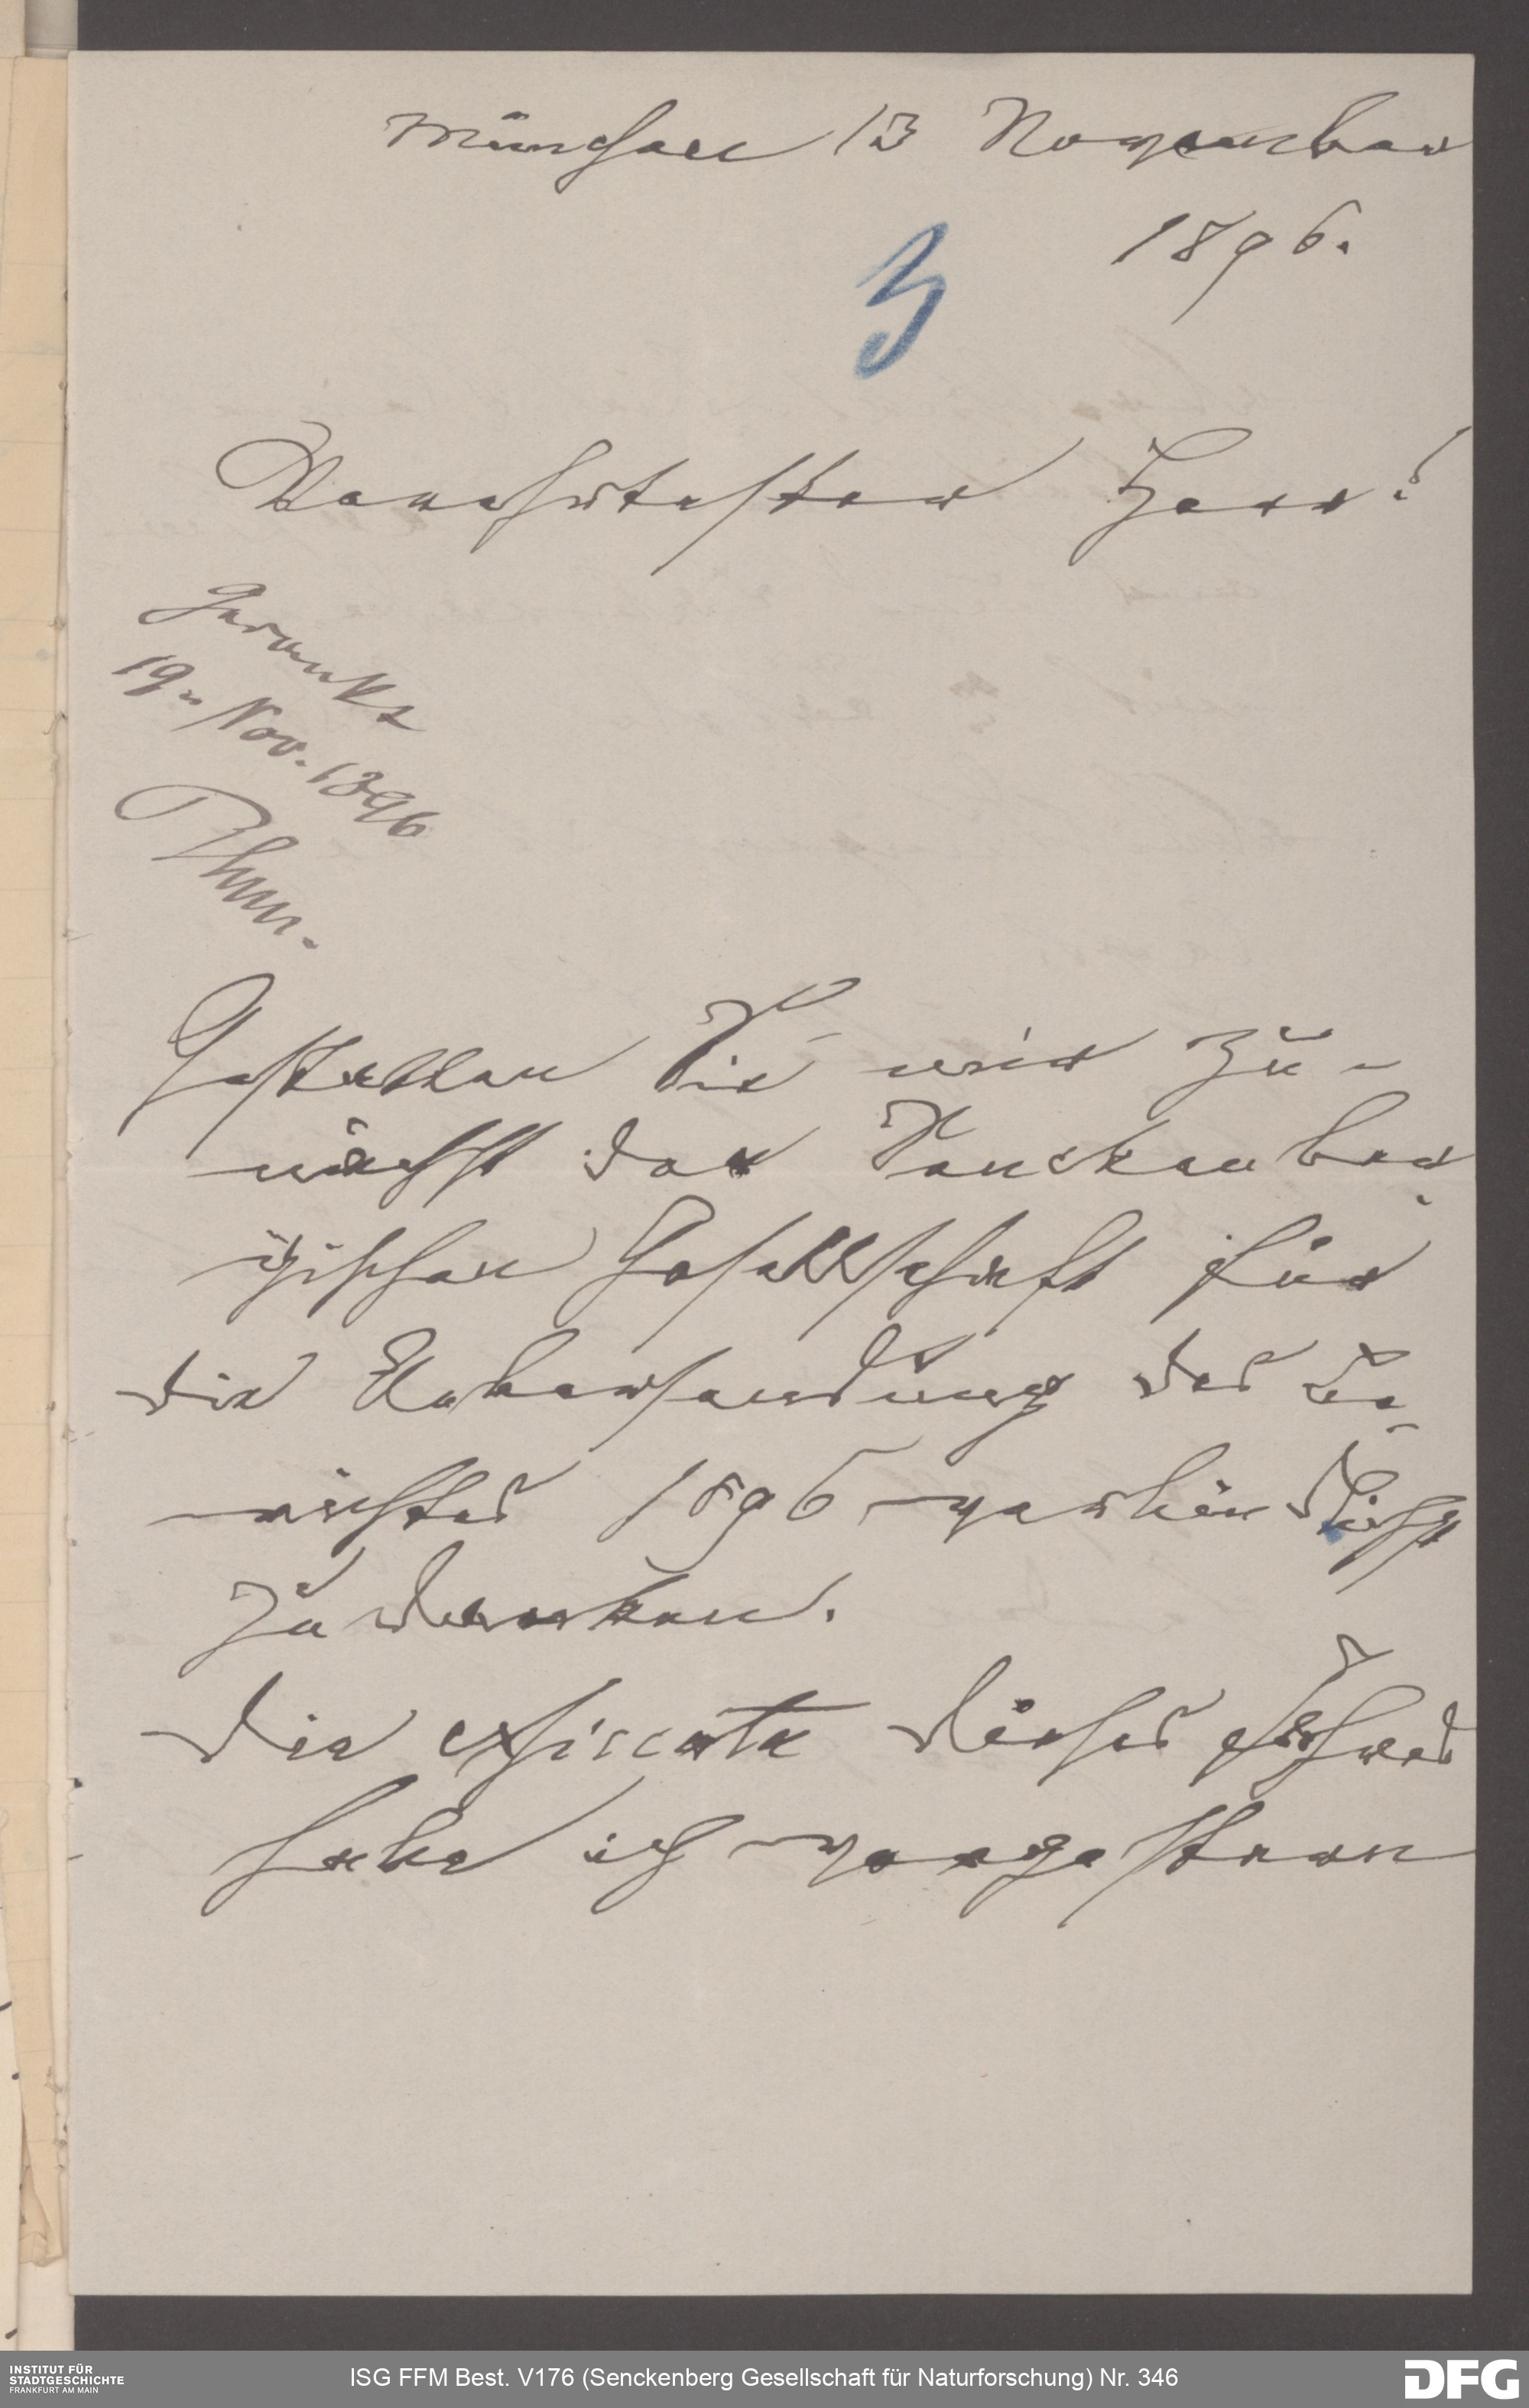 München 13 November
1896.
3
Verehrtester Herr!
Gedankt
19. Nov. 1896
Gestatten Sie mir zu-
nächst der Senckenber
gischen Gesellschaft für
die Uebersendung des Be-
richtes 1896 verbindlichst
zu danken.
Die exsiccata dieses
habe ich vorgestern
INSTITUT FÜR
STADTGESCHICHTE
FRANKFURT AM MAIN
ISG FFM Best. V176 (Senckenberg Gesellschaft für Naturforschung) Nr. 346
DFG